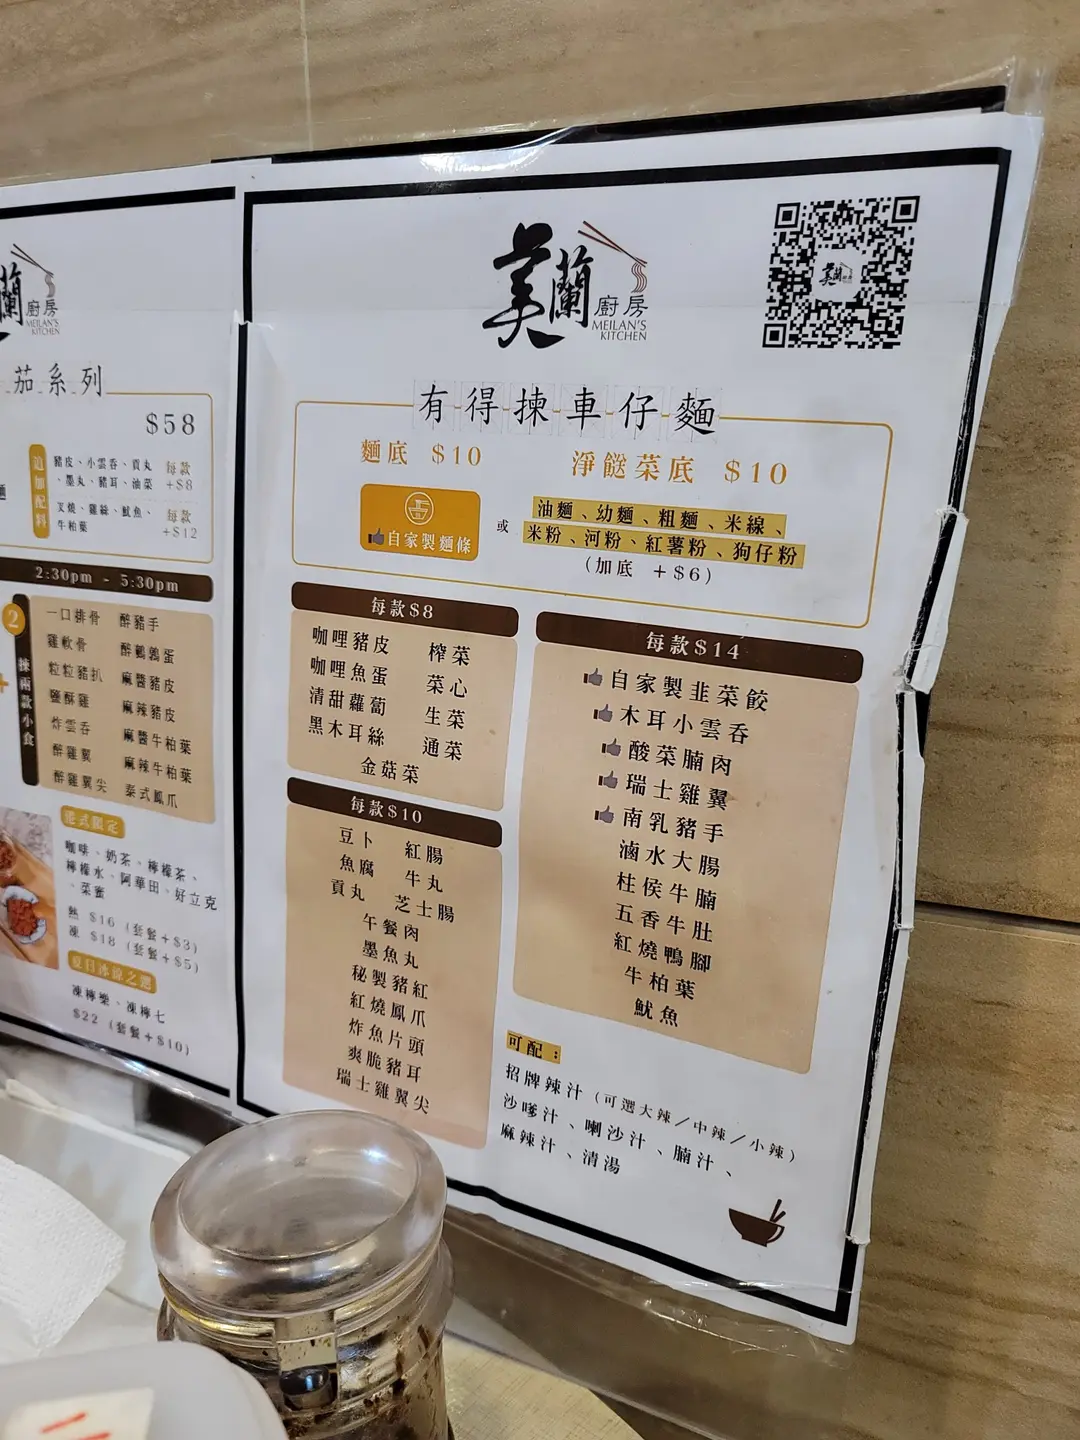 蘭
廚房
MEILAN'S
KITCHEN
茄系列
$58
追加配料
豬皮、小雲吞、貢丸
、墨丸、豬耳、油菜
每款
+$8
叉燒、雞絲、魷魚、
牛柏葉
每款
+$12
2:30pm - 5:30pm
2
揀兩款小食
一口排骨 醉豬手
雞軟骨 醉鵪鶉蛋
粒粒豬扒 麻醬豬皮
鹽酥雞 麻辣豬皮
炸雲吞 麻醬牛柏葉
醉雞翼 麻辣牛柏葉
醉雞翼尖 泰式鳳爪
港式限定
咖啡、奶茶、檸檬茶、
檸檬水、阿華田、好立克
、菜蜜
熱 $16 (套餐+$3)
凍 $18 (套餐+$5)
夏日冰涼之選
凍檸樂、凍檸七
$22 (套餐+$10)
美蘭
廚房
MEILAN'S
KITCHEN
美蘭
有得揀車仔麵
麵底 $10
淨餸菜底 $10
自家製麵條
或
油麵、幼麵、粗麵、米線、
米粉、河粉、紅薯粉、狗仔粉
(加底 +$6)
每款$8
咖哩豬皮 榨菜
咖哩魚蛋 菜心
清甜蘿蔔 生菜
黑木耳絲 通菜
金菇菜
每款$10
豆卜 紅腸
魚腐 牛丸
貢丸 芝士腸
午餐肉
墨魚丸
秘製豬紅
紅燒鳳爪
炸魚片頭
爽脆豬耳
瑞士雞翼尖
每款$14
自家製韭菜餃
木耳小雲吞
酸菜腩肉
瑞士雞翼
南乳豬手
滷水大腸
柱侯牛腩
五香牛肚
紅燒鴨腳
牛柏葉
魷魚
可配：
招牌辣汁 (可選大辣／中辣／小辣)
沙嗲汁、喇沙汁、腩汁、
麻辣汁、清湯